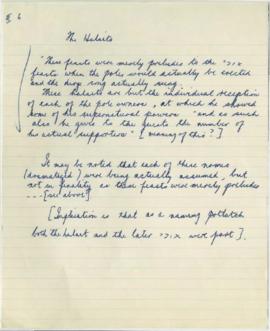 § 6
The Halaits
"These feasts were merely preludes to the
feasts when the poles would actually be erected
and the drop song actually sung.
These Halaits are but the individual reception
of each of the pole owners, at which he showed
some of his supernatural powers and as such
also he gives to the guests the number of
his actual supporters" [meaning of this?]
It may be noted that each of these names
(dramatized) were being actually assumed, but
not in finality as these feasts were merely preludes
---- [see above]
[Implication is that as a naming potlatch
both the halait and the later were part].